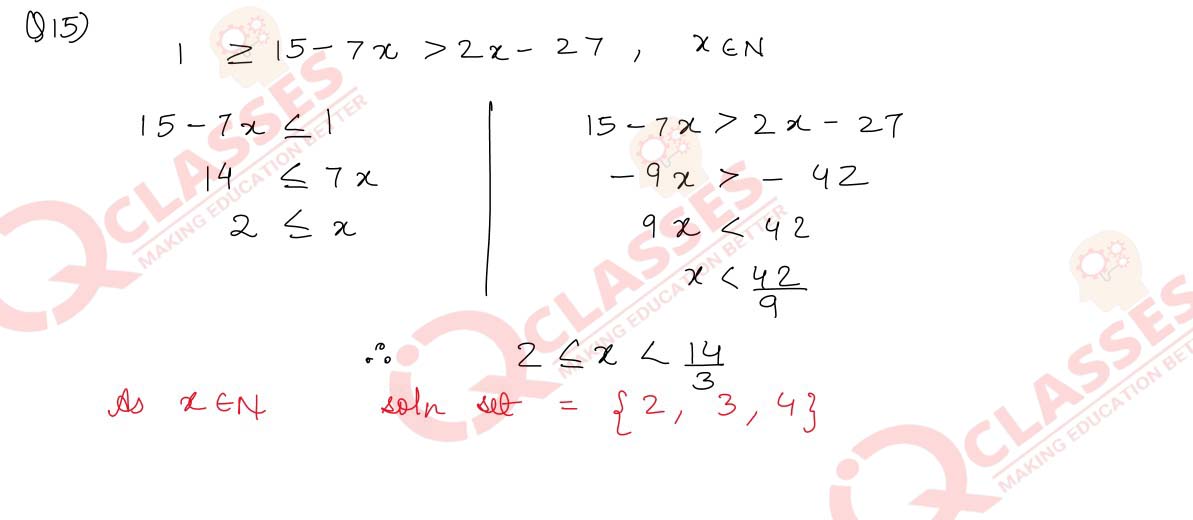 Q15)
1 ≥ 15 - 7x > 2x - 27 , x ∈ N
15 - 7x ≤ 1
14 ≤ 7x
2 ≤ x
15 - 7x > 2x - 27
-9x > - 42
9x < 42
x < 42/9
∴ 2 ≤ x < 14/3
As x ∈ N soln set = {2, 3, 4}
QCLASSES
MAKING EDUCATION BETTER
QCLASSES
MAKING EDUCATION BETTER
QCLASSES
MAKING EDUCATION BETTER